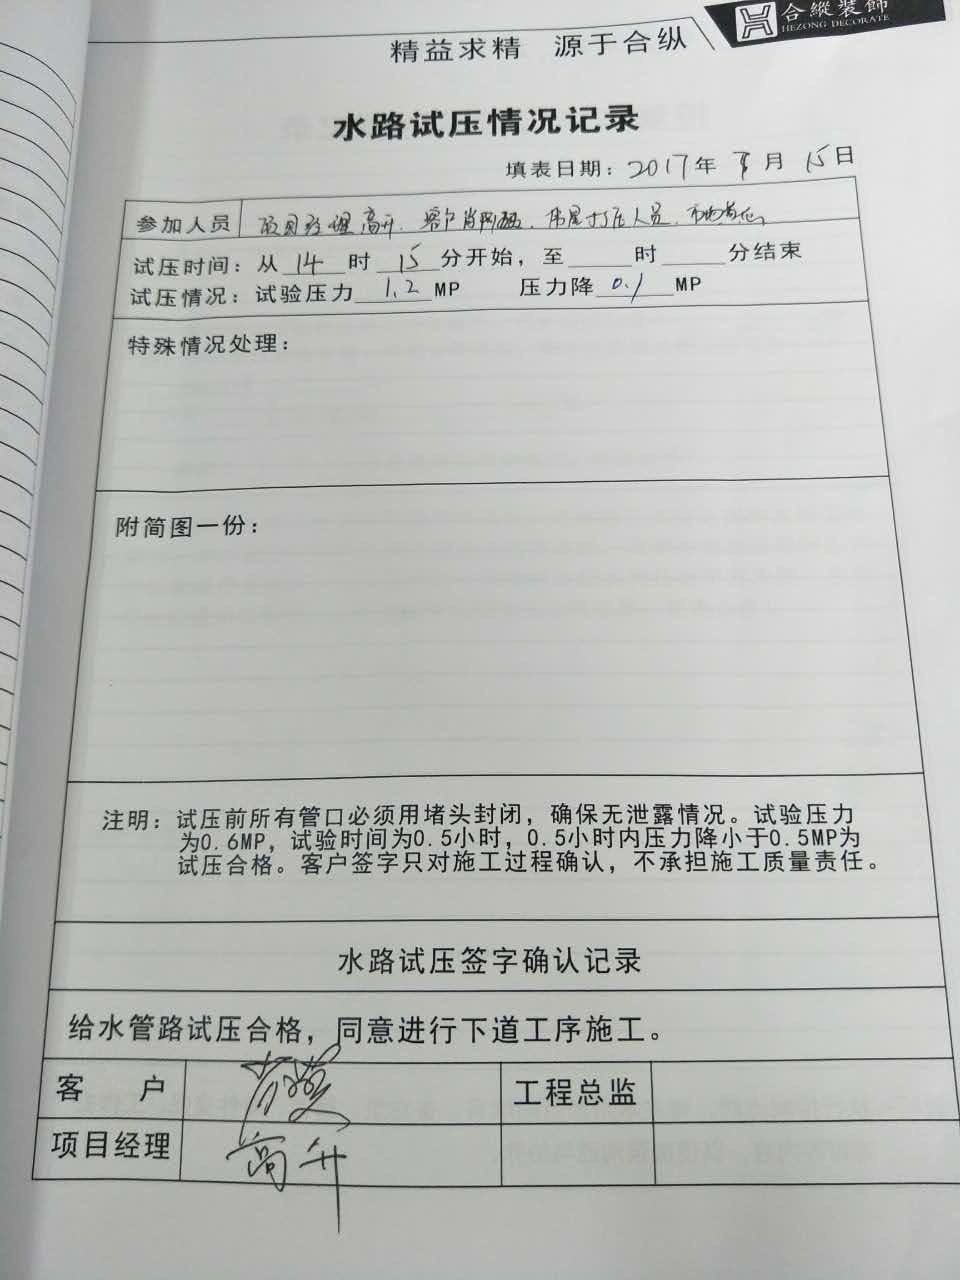 合縱装飾
HEZONG DECORATE
精益求精 源于合纵
水路试压情况记录
填表日期：2017年 月 15日
参加人员 项目经理高升、客户肖 、 打压人员、
试压时间：从 14 时 15 分开始，至 时 分结束
试压情况：试验压力 1.2 MP 压力降 0.1 MP
特殊情况处理：
附简图一份：
注明：试压前所有管口必须用堵头封闭，确保无泄露情况。试验压力
为0.6MP，试验时间为0.5小时，0.5小时内压力降小于0.5MP为
试压合格。客户签字只对施工过程确认，不承担施工质量责任。
水路试压签字确认记录
给水管路试压合格，同意进行下道工序施工。
客 户 工程总监
项目经理 高升